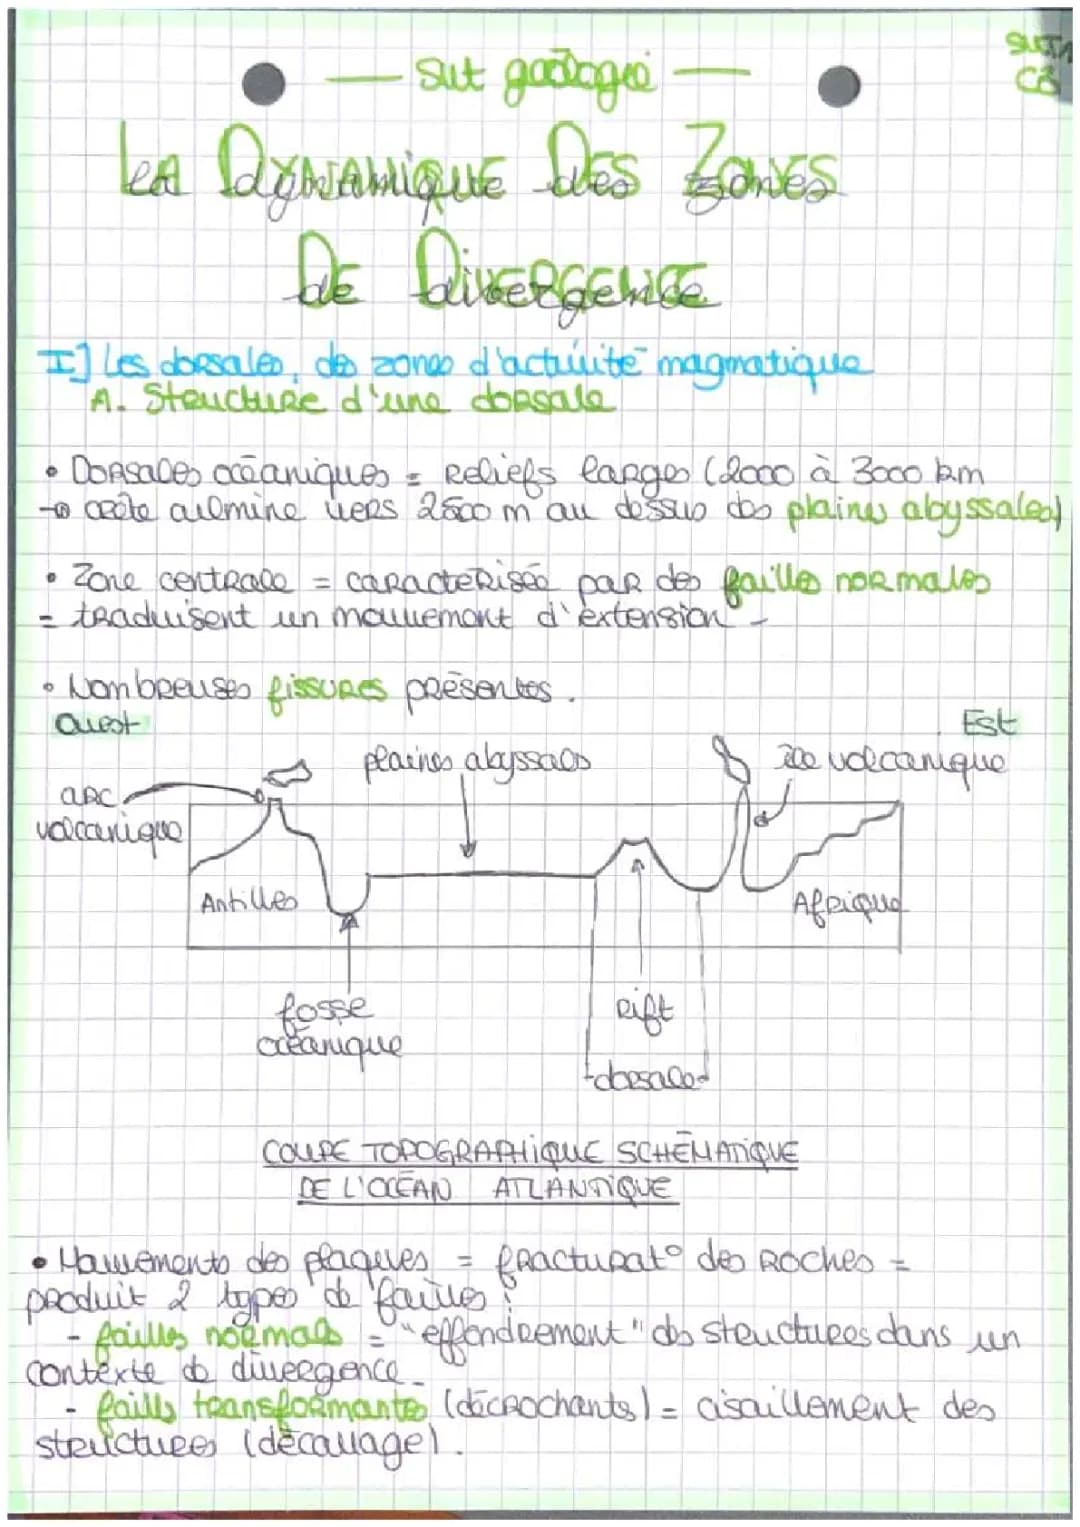 — SVT géologie —
La Dynamique Des Zones
De Divergence
I] Les dorsales, des zones d'activité magmatique
A. Structure d'une dorsale
• Dorsales océaniques = Reliefs larges (2000 à 3000 km
→ crête culmine vers 2500 m au dessus des plaines abyssales)
• Zone centrale = caractérisée par des failles normales
= traduisent un mouvement d'extension -
• Nombreuses fissures présentes.
Ouest
Est
plaines abyssales
île volcanique
arc
volcanique
Antilles
Afrique
fosse
océanique
Rift
dorsale
COUPE TOPOGRAPHIQUE SCHÉMATIQUE
DE L'OCÉAN ATLANTIQUE
• Mouvements des plaques = fracturat° des Roches =
produit 2 types de failles :
- failles normales = "effondrement" des structures dans un
contexte de divergence.
- failles transformantes (décrochants) = cisaillement des
structures (décallage).